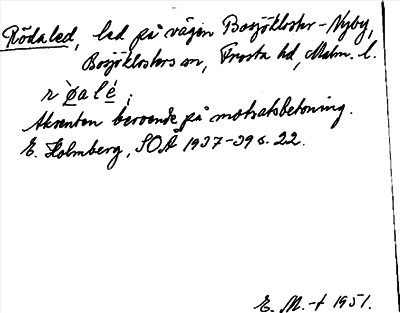 Rödaled, led på vägen Bosjökloster-Nyby,
Bosjöklosters sn, Frosta hd, Malm. l.
r`øalé;
Akzenten beroende på motsatsbetoning.
E. Holmberg, SOÅ 1937-39 s. 22.
E. M-t 1951.